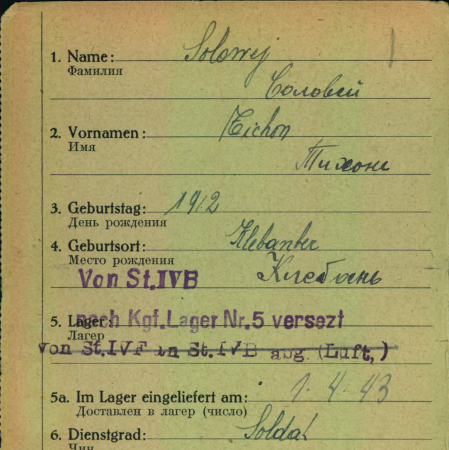 1. Name: Solowej
Фамилия
Соловей
2. Vornamen: Tichon
Имя
Тихон
3. Geburtstag: 1912
День рождения
4. Geburtsort:
Место рождения
Von St.IVB
5. Lager: nach Kgf.Lager Nr.5 versezt
Лагер
von St.IVF in St.IVB abg. (Luft,)
5a. Im Lager eingeliefert am: 1.4.43
Доставлен в лагер (число)
6. Dienstgrad: Soldat
Чин